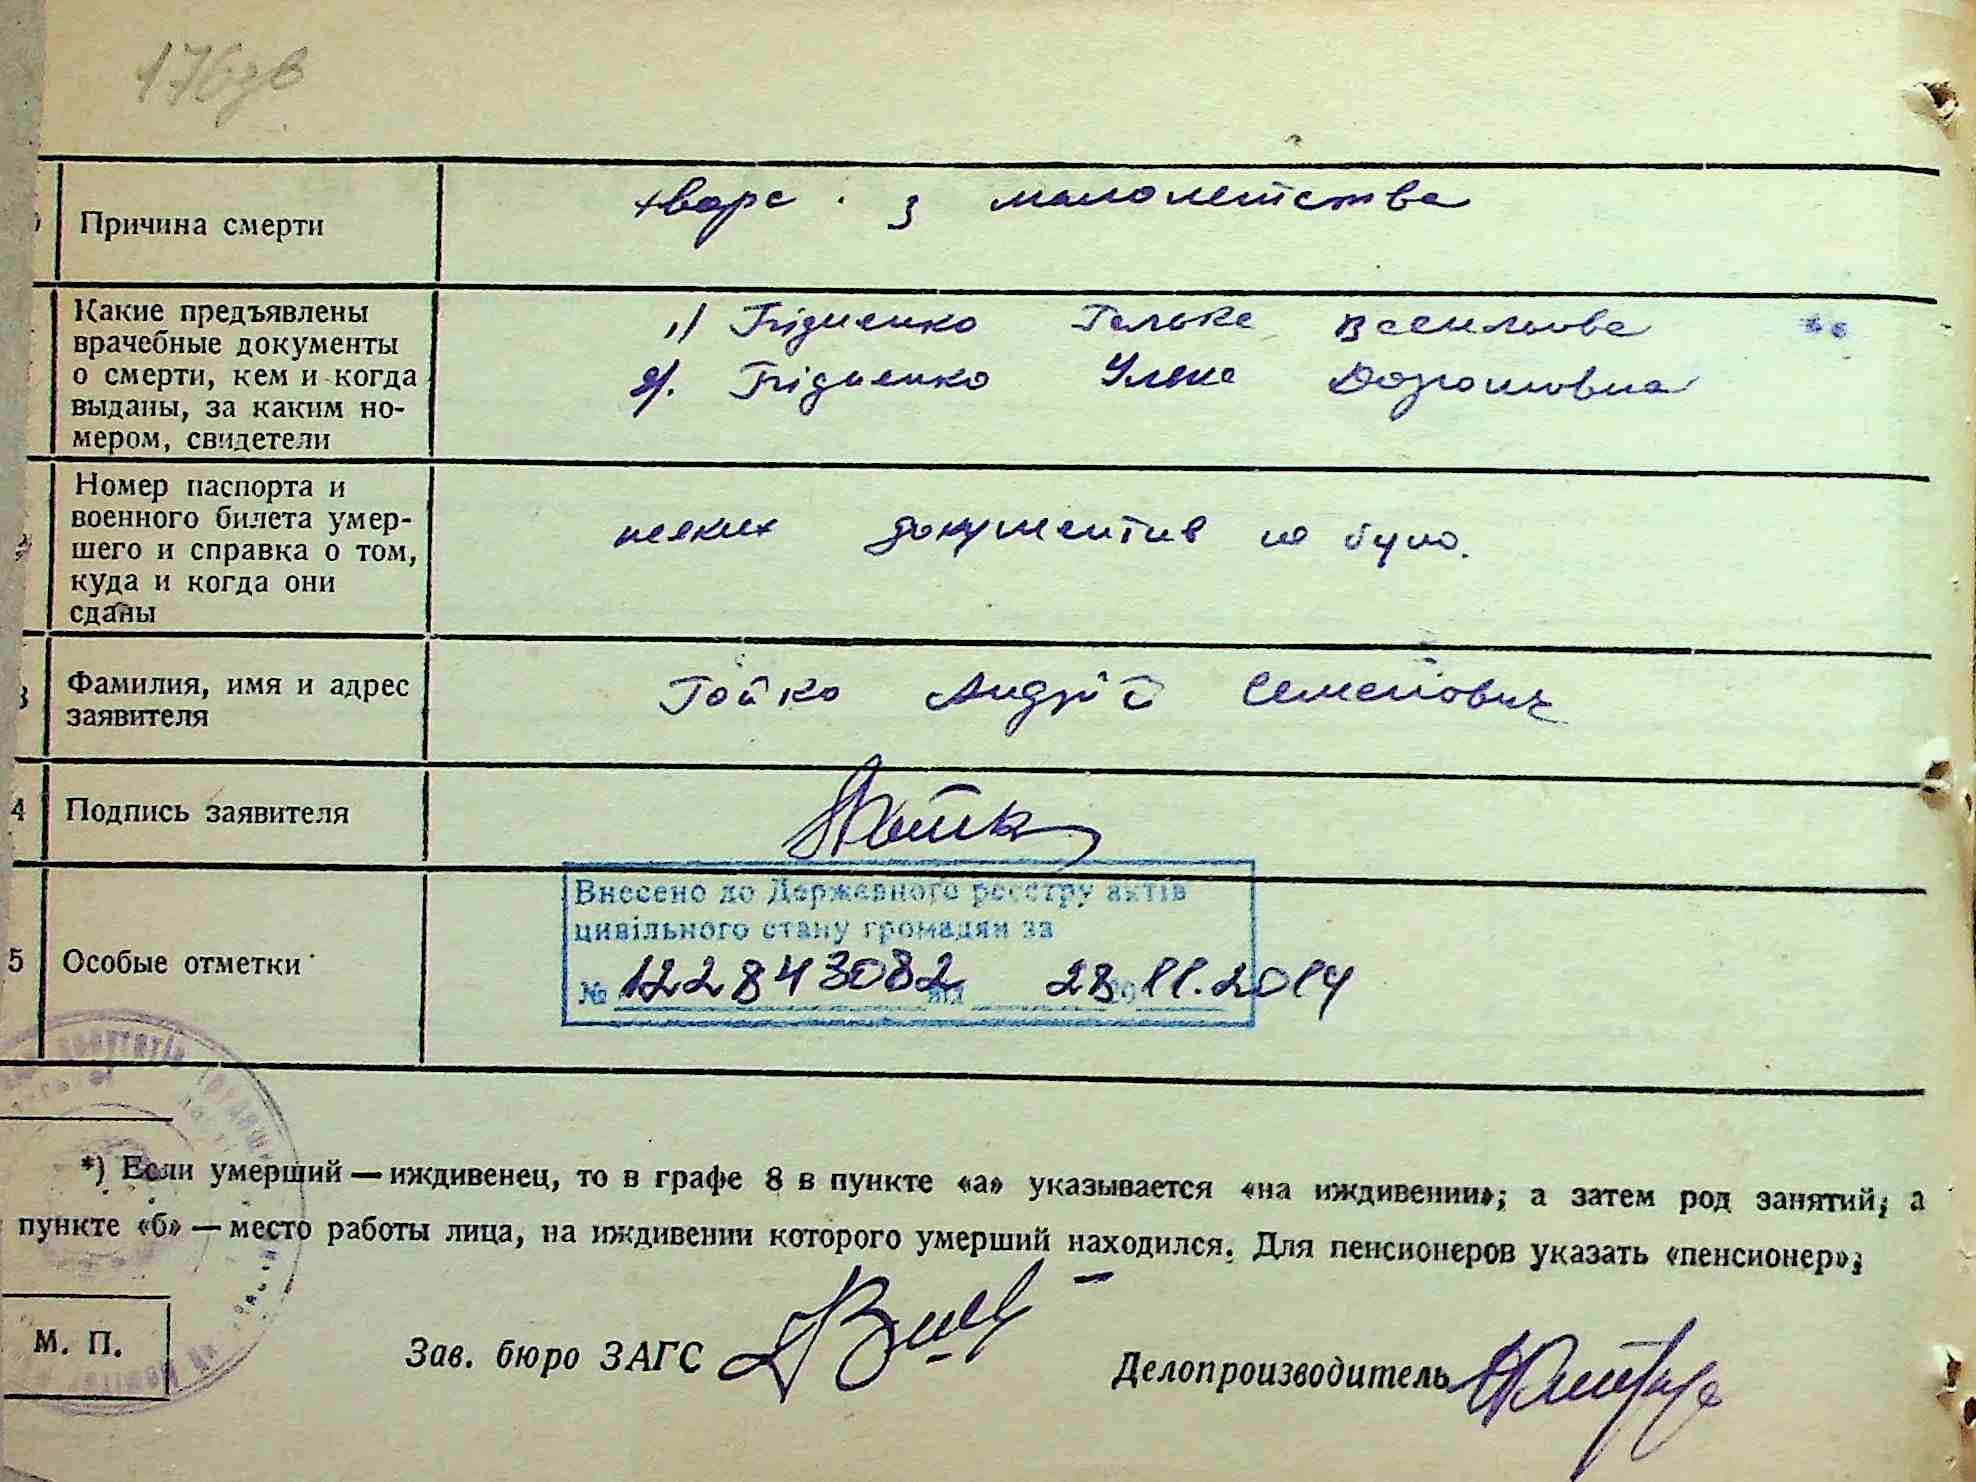 176зв
Причина смерти
хвора з малолетства
Какие предъявлены
врачебные документы
о смерти, кем и когда
выданы, за каким но-
мером, свидетели
1) Гридненко Галька Васильова
2). Гридненко Уляна Дорошовна
Номер паспорта и
военного билета умер-
шего и справка о том,
куда и когда они
сданы
неяких документив не було.
3 Фамилия, имя и адрес
заявителя
Гойко Андрій Семенович
4 Подпись заявителя
Гойко
Внесено до Державного реєстру актів
цивільного стану громадян за
№ 122843082 від 28.11.2014
5 Особые отметки
*) Если умерший — иждивенец, то в графе 8 в пункте «а» указывается «на иждивении»; а затем род занятий; а
пункте «б» — место работы лица, на иждивении которого умерший находился. Для пенсионеров указать «пенсионер»;
М. П.
Зав. бюро ЗАГС
Делопроизводитель